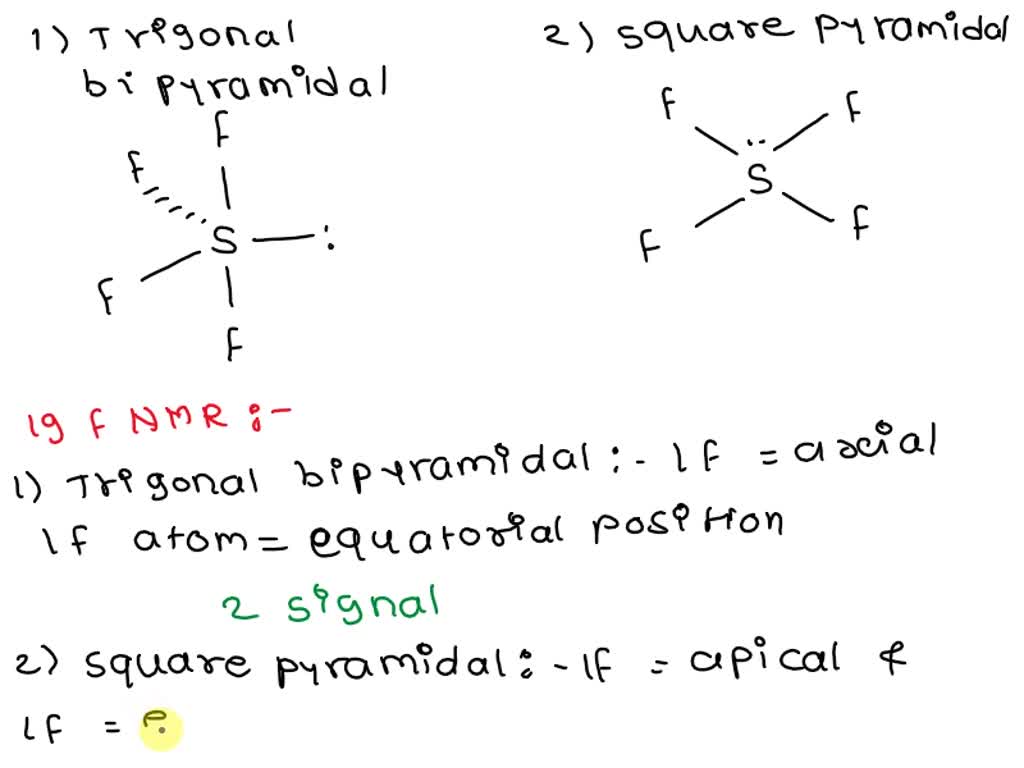 1) Trigonal
bipyramidal
2) square pyramidal
F
F
S :
F
F
F F
..
S
F F
19 F NMR :-
1) Trigonal bipyramidal :- 1F = axial
1F atom = equatorial position
2 signal
2) square pyramidal :- 1F = apical &
1F = e